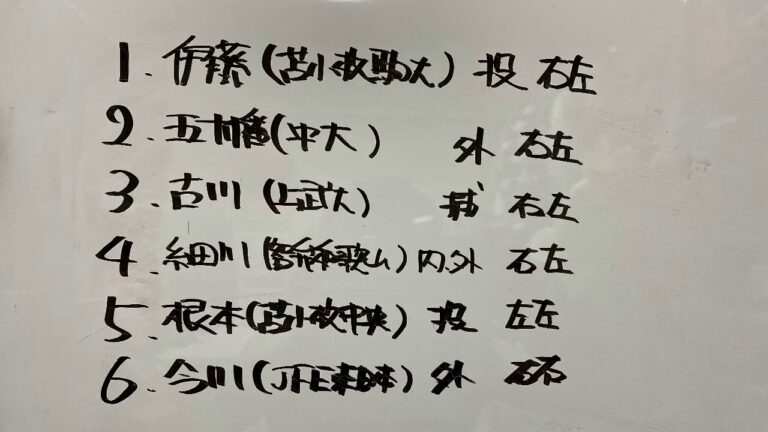 1. 伊藤(苫小牧駒大) 投 右左
2. 五十幡(中大) 外 右左
3. 古川(上武大) 捕 右左
4. 細川(智弁和歌山) 内.外 右左
5. 根本(苫小牧中央) 投 左左
6. 今川(JFE東日本) 外 右右